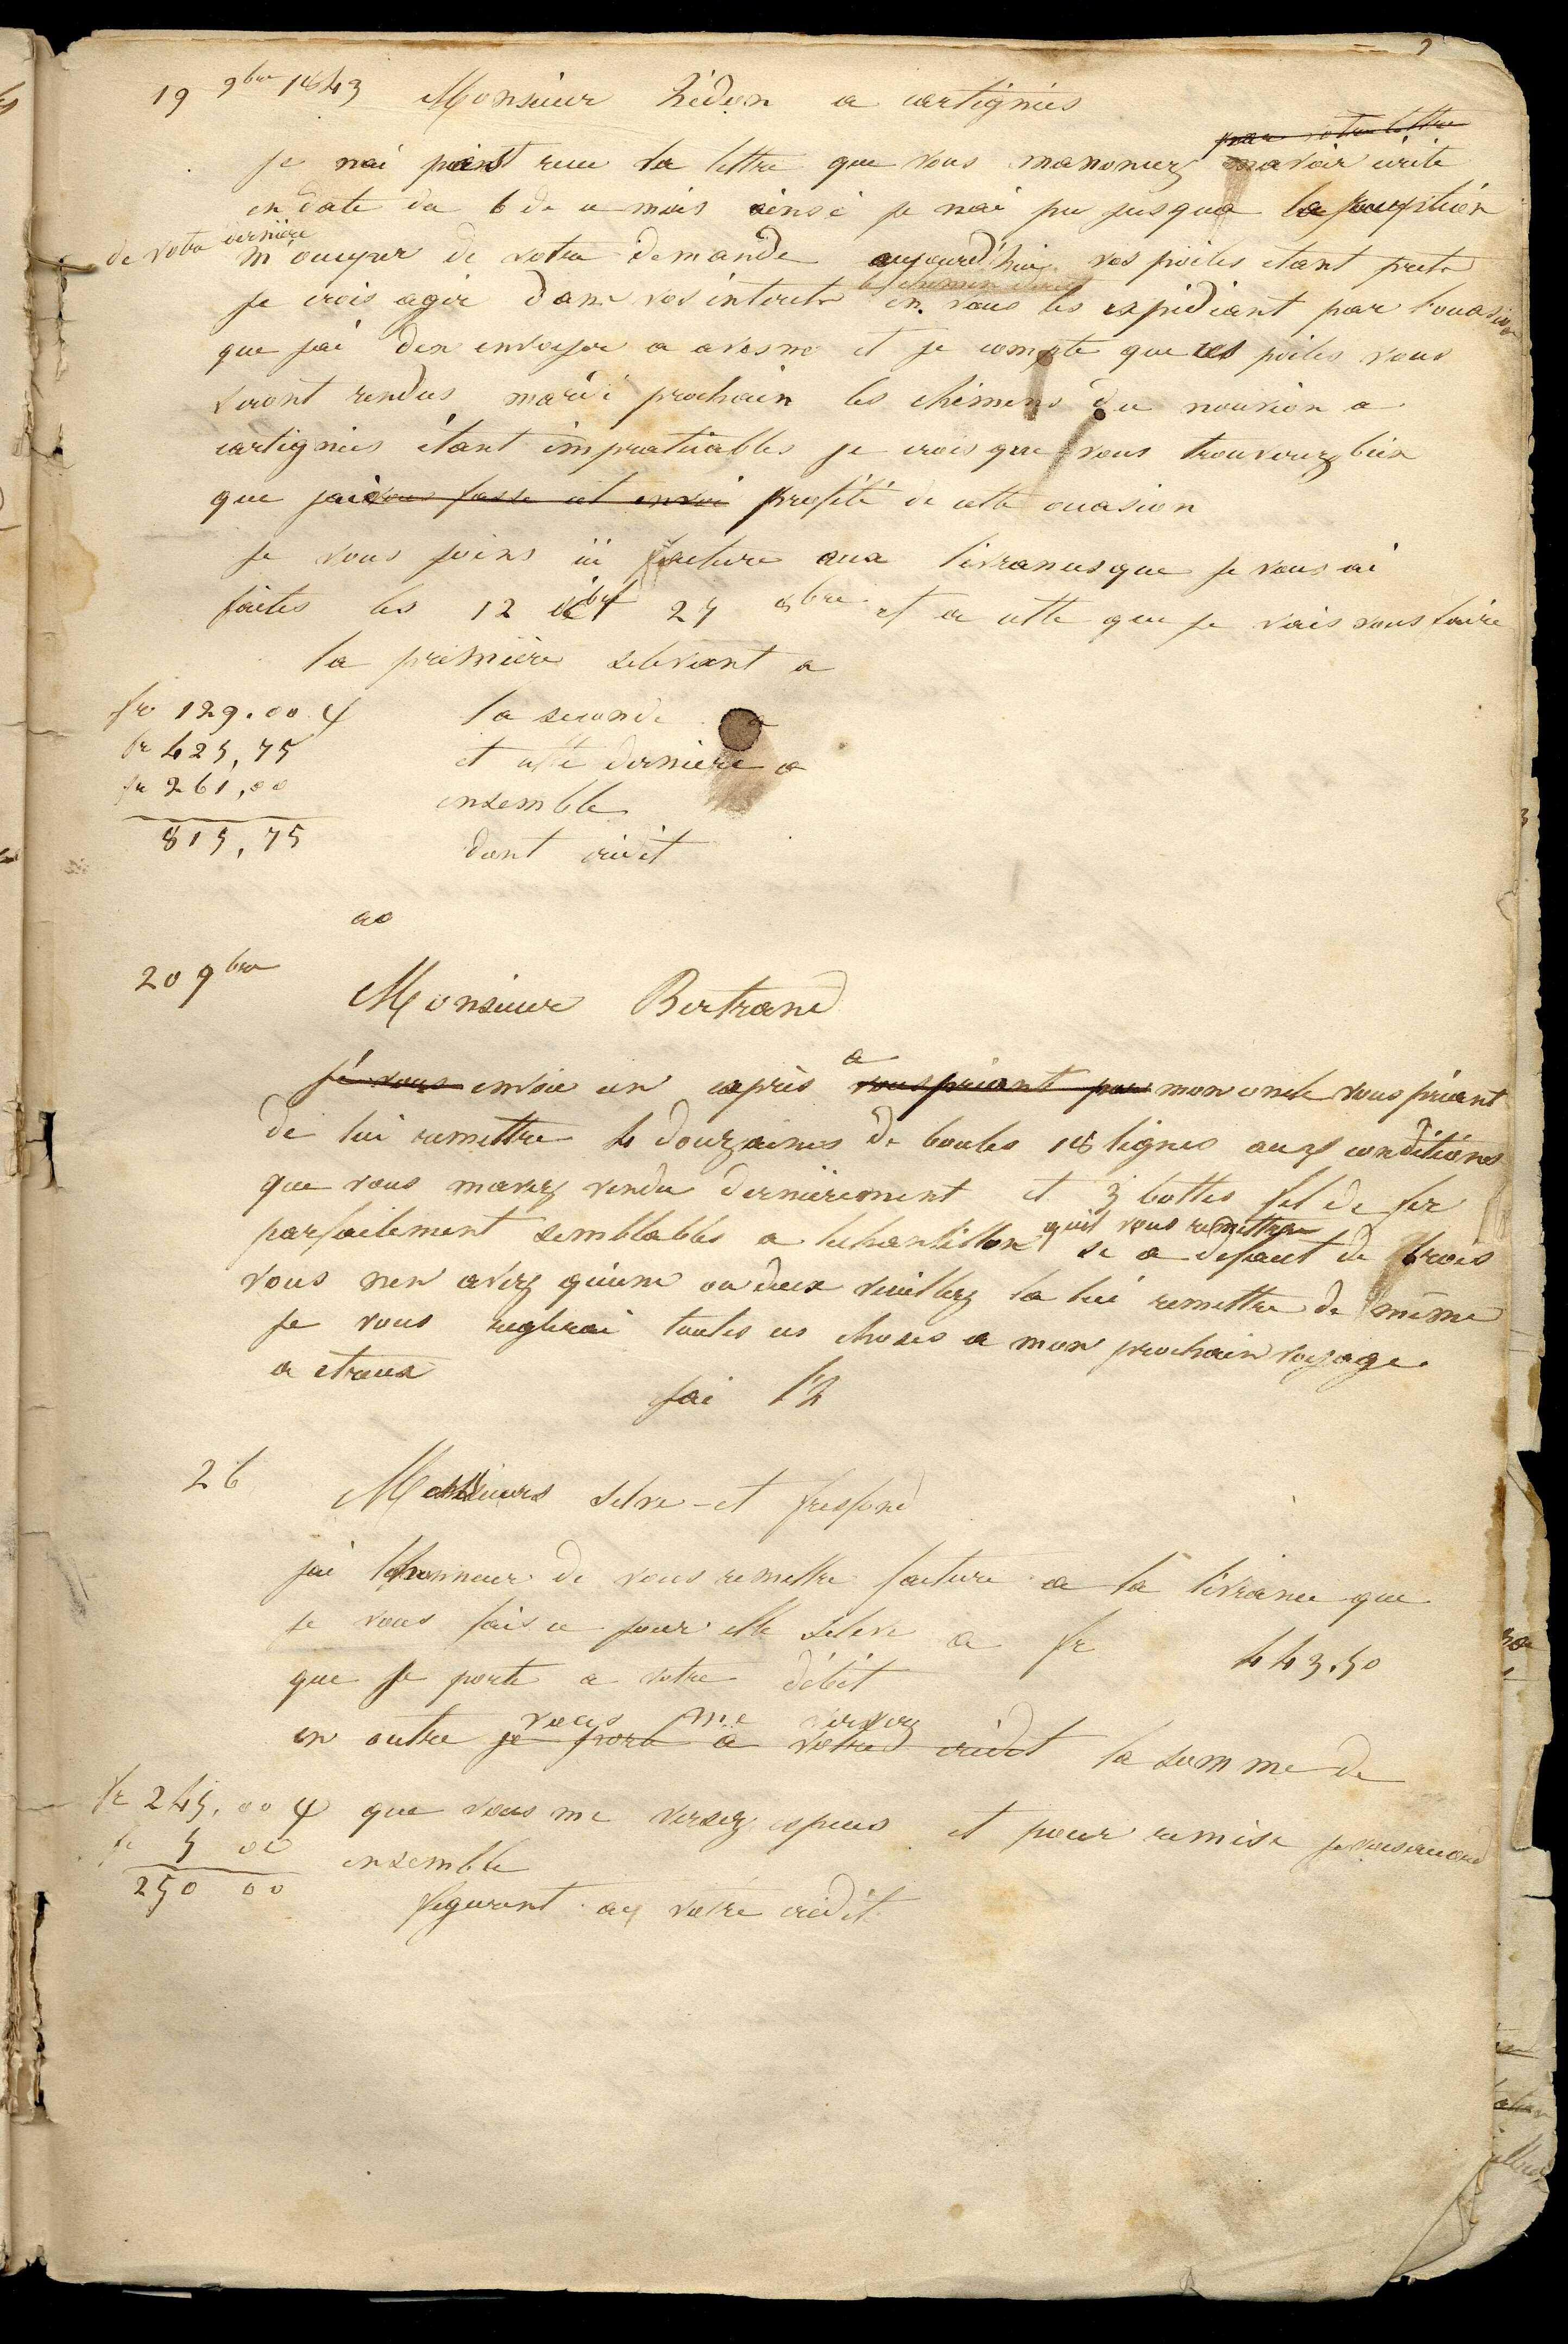 19 9bre 1843 Monsieur hédon a cartignies
par votre lettre
je nai point recu la lettre que vous manoncez mavoir écrite
en date du 6 de ce mois ainsi je nai pu jusqua la reception
de votre dernière m'occuper de votre demande aujourd'hui vos poiles étant prets
je crois agir dans vos interets en vous les expédiant par loccasion
que jai den envoyer a avesne et je compte que ces poiles vous
seront rendus mardi prochain les chemins du nouvion a
cartignies étant impraticables je crois que vous trouverez bien
que jai vous fasse cet envoi profité de cette occasion
je vous joins ici facture aux livrances que je vous ai
faites les 12 et 25 8bre et a cette que je vais vous faire
la première selevant a
fr 129.00 la seconde a
fr 425,75 et cette dernière a
fr 261,00 ensemble
815,75 dont crédit
ao
20 9bre
Monsieur Bertrand
je vous envoie un exprès a vous priant pour mon oncle vous priant
de lui remettre 4 douzaines de boules 18 lignes aux conditions
que vous mavez vendu dernièrement et 3 bottes fil de fer
parfaitement semblables a lechantillon quil vous remettra si a defaut de trois
vous nen avez quune ou deux veuillez la lui remettre de même
je vous reglerai toutes ces choses a mon prochain voyage
a etraux
jai l'h
26 Messieurs selve et
jai lhonneur de vous remettre facture a la livrance que
je vous fais ce jour elle selève a fr 443.50
que je porte a votre débit
vous me versez
en outre je porte a votre crédit la somme de
fr 245.00 que vous me versez especes et pour remise je vous accorde
fr 5 00 ensemble
250 00
figurant au votre crédit